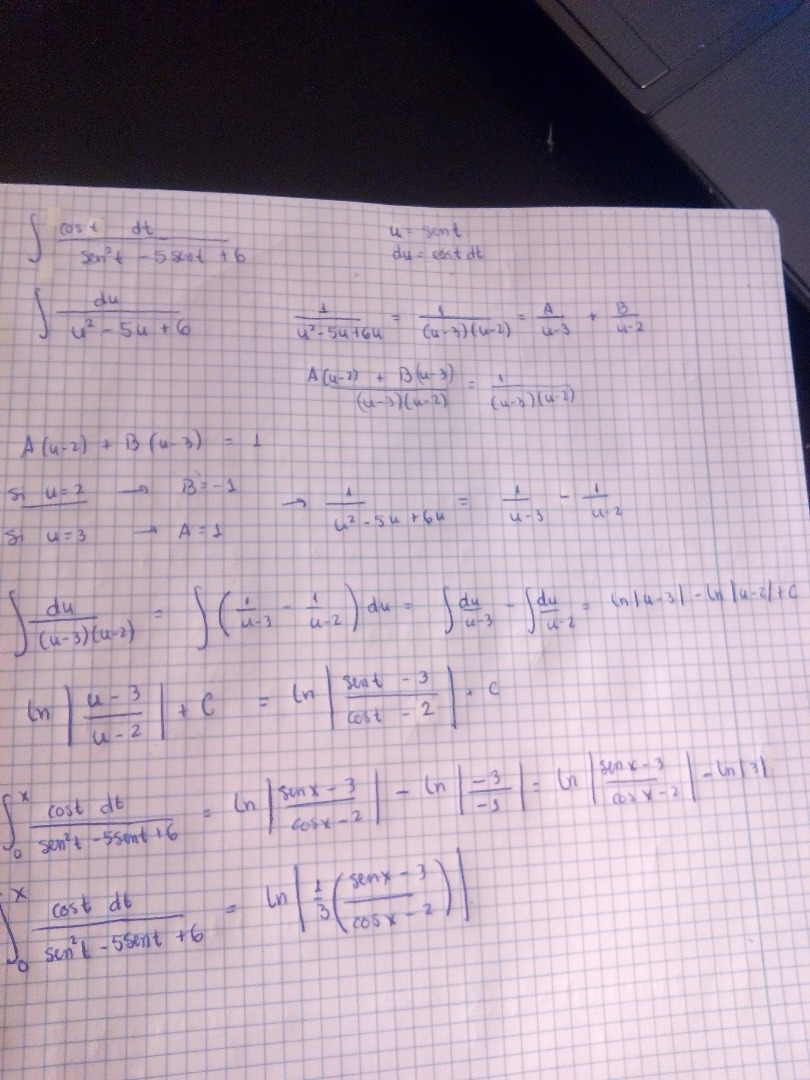 ∫ cost dt / (sen²t - 5sent + 6)    u = sent
du = cost dt
∫ du / (u² - 5u + 6)    1/(u² - 5u + 6u) = 1/((u-3)(u-2)) = A/(u-3) + B/(u-2)
(A(u-2) + B(u-3)) / ((u-3)(u-2)) = 1/((u-3)(u-2))
A(u-2) + B(u-3) = 1
Si u=2 → B=-1 → 1/(u² - 5u + 6u) = 1/(u-3) - 1/(u-2)
Si u=3 → A=1
∫ du/((u-3)(u-2)) = ∫ (1/(u-3) - 1/(u-2)) du = ∫ du/(u-3) - ∫ du/(u-2) = ln|u-3| - ln|u-2| + C
ln |(u-3)/(u-2)| + C = ln |(sent - 3)/(cost - 2)| + C
∫₀ˣ cost dt / (sen²t - 5sent + 6) = ln |(senx - 3)/(cosx - 2)| - ln |-3/-1| = ln |(senx - 3)/(cosx - 2)| - ln|3|
∫₀ˣ cost dt / (sen²t - 5sent + 6) = ln |1/3 ((senx - 3)/(cosx - 2))|